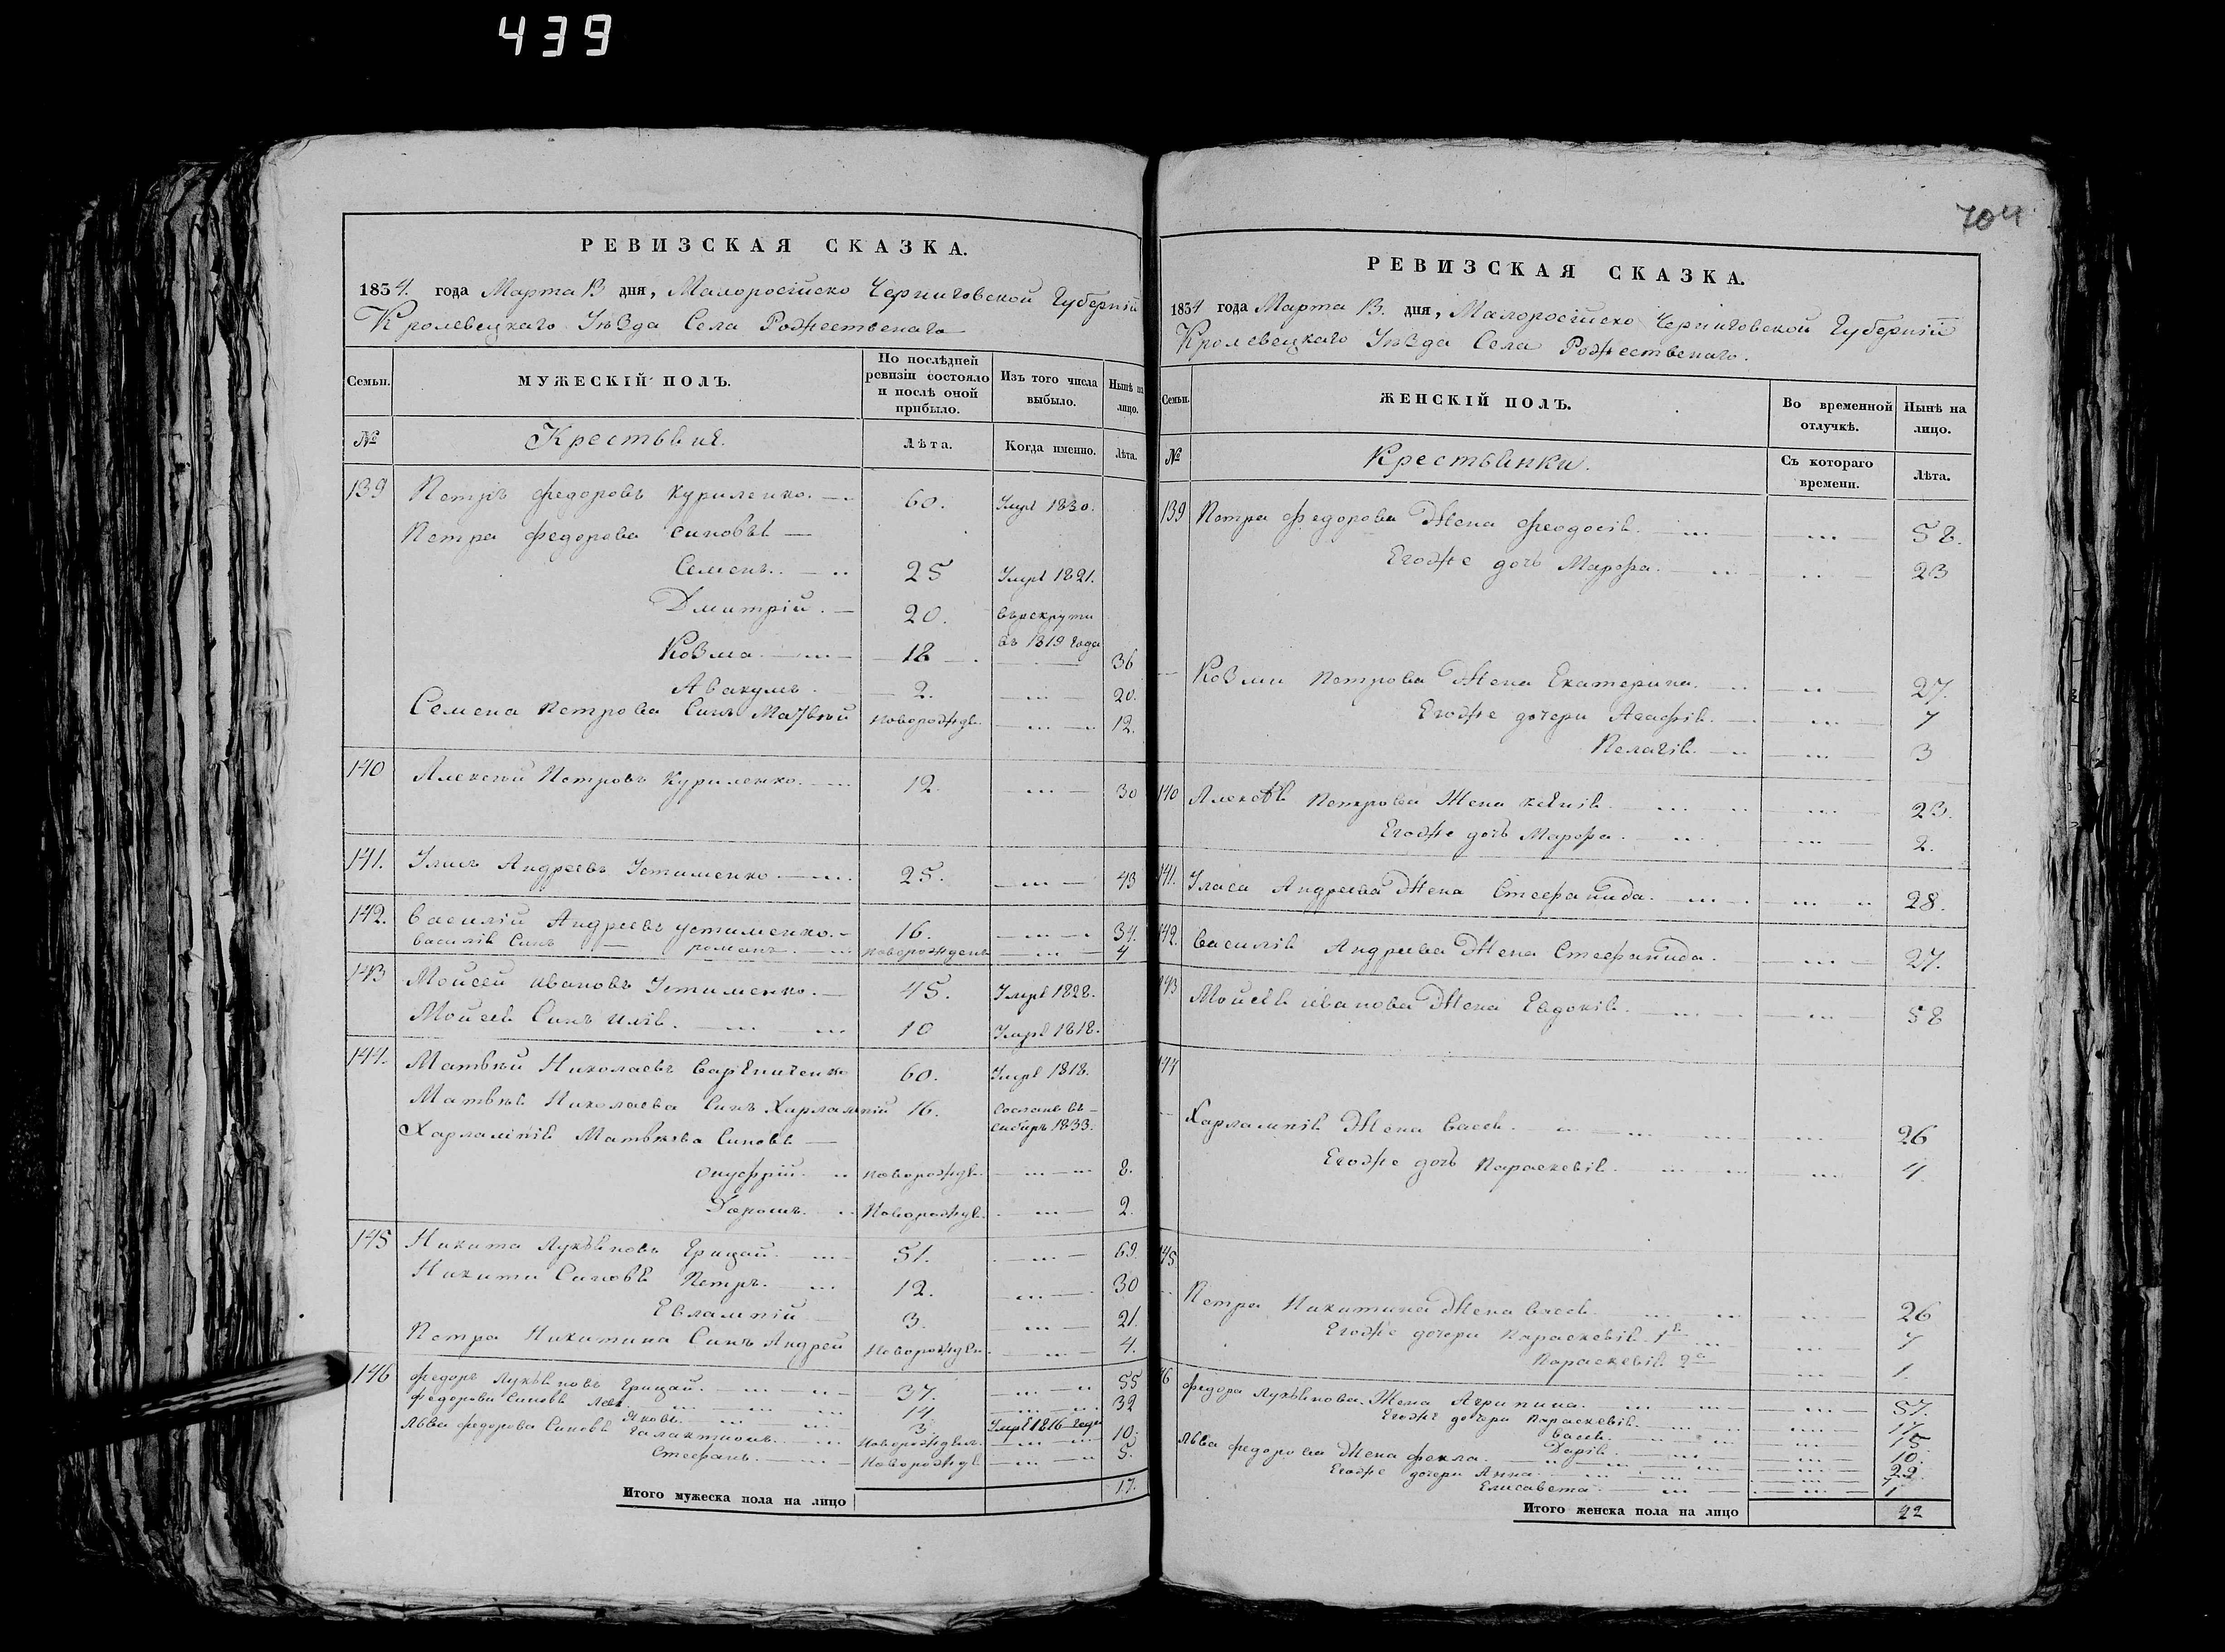 439
РЕВИЗСКАЯ СКАЗКА.
1834. года Марта 13 дня, Малоросійско Черниговской Губерніи
Кролевецкаго Уѣзда Села Рождественаго
Семьи. МУЖЕСКІЙ ПОЛЪ. По послѣдней ревизіи состояло и послѣ оной прибыло. Изъ того числа выбыло. Нынѣ на лицо.
№ Крестьяне. Лѣта. Когда именно. Лѣта.
139 Петръ Федоровъ Куриленко. 60. Умре 1830.
Петра Федорова синовья
Семенъ. 25 Умре 1821.
Дмитрій. 20. въ рекрути въ 1819 года
Козма 18 36
Авакумъ. 2. 20.
Семена Петрова Синъ Матвѣй новорожде. 12.
140 Алексѣй Петровъ Куриленко. 12. 30
141. Уласъ Андреевъ Устименко 25. 43
142. Василій Андреевъ Устименко. 16. 34.
Василія Синъ романъ новорожденъ 4
143 Мойсей ивановъ Устименко. 45. Умре 1828.
Мойсея Синъ илія. 10 Умре 1818.
144. Матвѣй Николаевъ 60. Умре 1818.
Матвѣя Николаева Синъ Харлампій 16. сосланъ въ сибирь 1833.
Харлампія Матвѣева Синовя
онуфрій. новорожде. 8.
Дорошъ. Новорожде. 2.
145 Никита Лукяновъ Грицай. 51. 69.
Никити Синовя Петръ. 12. 30
Евлампій 3. 21.
Петра Никитина Синъ Андрей Новорожде. 4.
146 Федоръ Лукяновъ Грицай. 37. 55
Федорови Синовя Левъ. 14 32
Яковъ. 3. Умре 1816 года
Льва Федорова Синовя Галактионъ. Новорожден. 10.
Стефанъ. Новорожде 5.
Итого мужеска пола на лицо 17.
704
РЕВИЗСКАЯ СКАЗКА.
1834 года Марта 13. дня, Малоросійско Черниговской Губерніи
Кролевецкаго Уѣзда Села Рождественаго.
Семьи. ЖЕНСКІЙ ПОЛЪ. Во временной отлучкѣ. Нынѣ на лицо.
№ Крестьянки. Съ котораго времени. Лѣта.
139 Петра Федорова Жена Феодосія. 58.
Егожже дочь Марфа. 23
Козми Петрова Жена Екатерина. 27.
Егоже дочери Агафія. 7
Пелагія. 3
140 Алексѣя Петрова Жена 23.
Егоже дочь Марфа. 2.
141. Уласа Андреева Жена Стефанида. 28.
142. Василія Андреева Жена Стефанида. 27.
143 Мойсея иванова Жена Евдокія. 58
144
Харлампія Жена Васса. 26
Егоже дочь Параскевія. 4
145
Петра Никитина Жена Васса. 26
Егоже дочери Параскевія 1я 7
Параскевія 2я 1.
146 Федора Лукянова Жена Агрипина. 57.
Егоже дочери Параскевія. 17
Васса. 15
Дарія. 10.
Льва Федорова Жена Фекла. 22.
Егоже дочери Анна. 7
Елисавета. 1
Итого женска пола на лицо 22